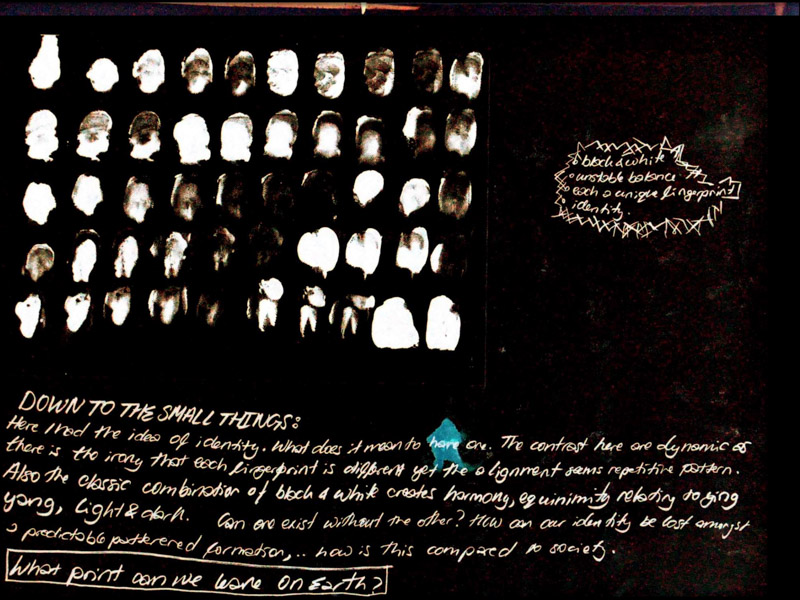 black & white
unstable balance
each a unique fingerprint
identity.
DOWN TO THE SMALL THINGS:
Here I had the idea of identity. What does it mean to have one. The contrast here are dynamic as
there is the irony that each fingerprint is different yet the alignment seems repetitive pattern.
Also the classic combination of black & white creates harmony, equinimity relating to ying
yang, light & dark. Can one exist without the other? How can our identity be lost amongst
a predictable patterered formation,.. how is this compared to society.
What print can we leave on Earth?